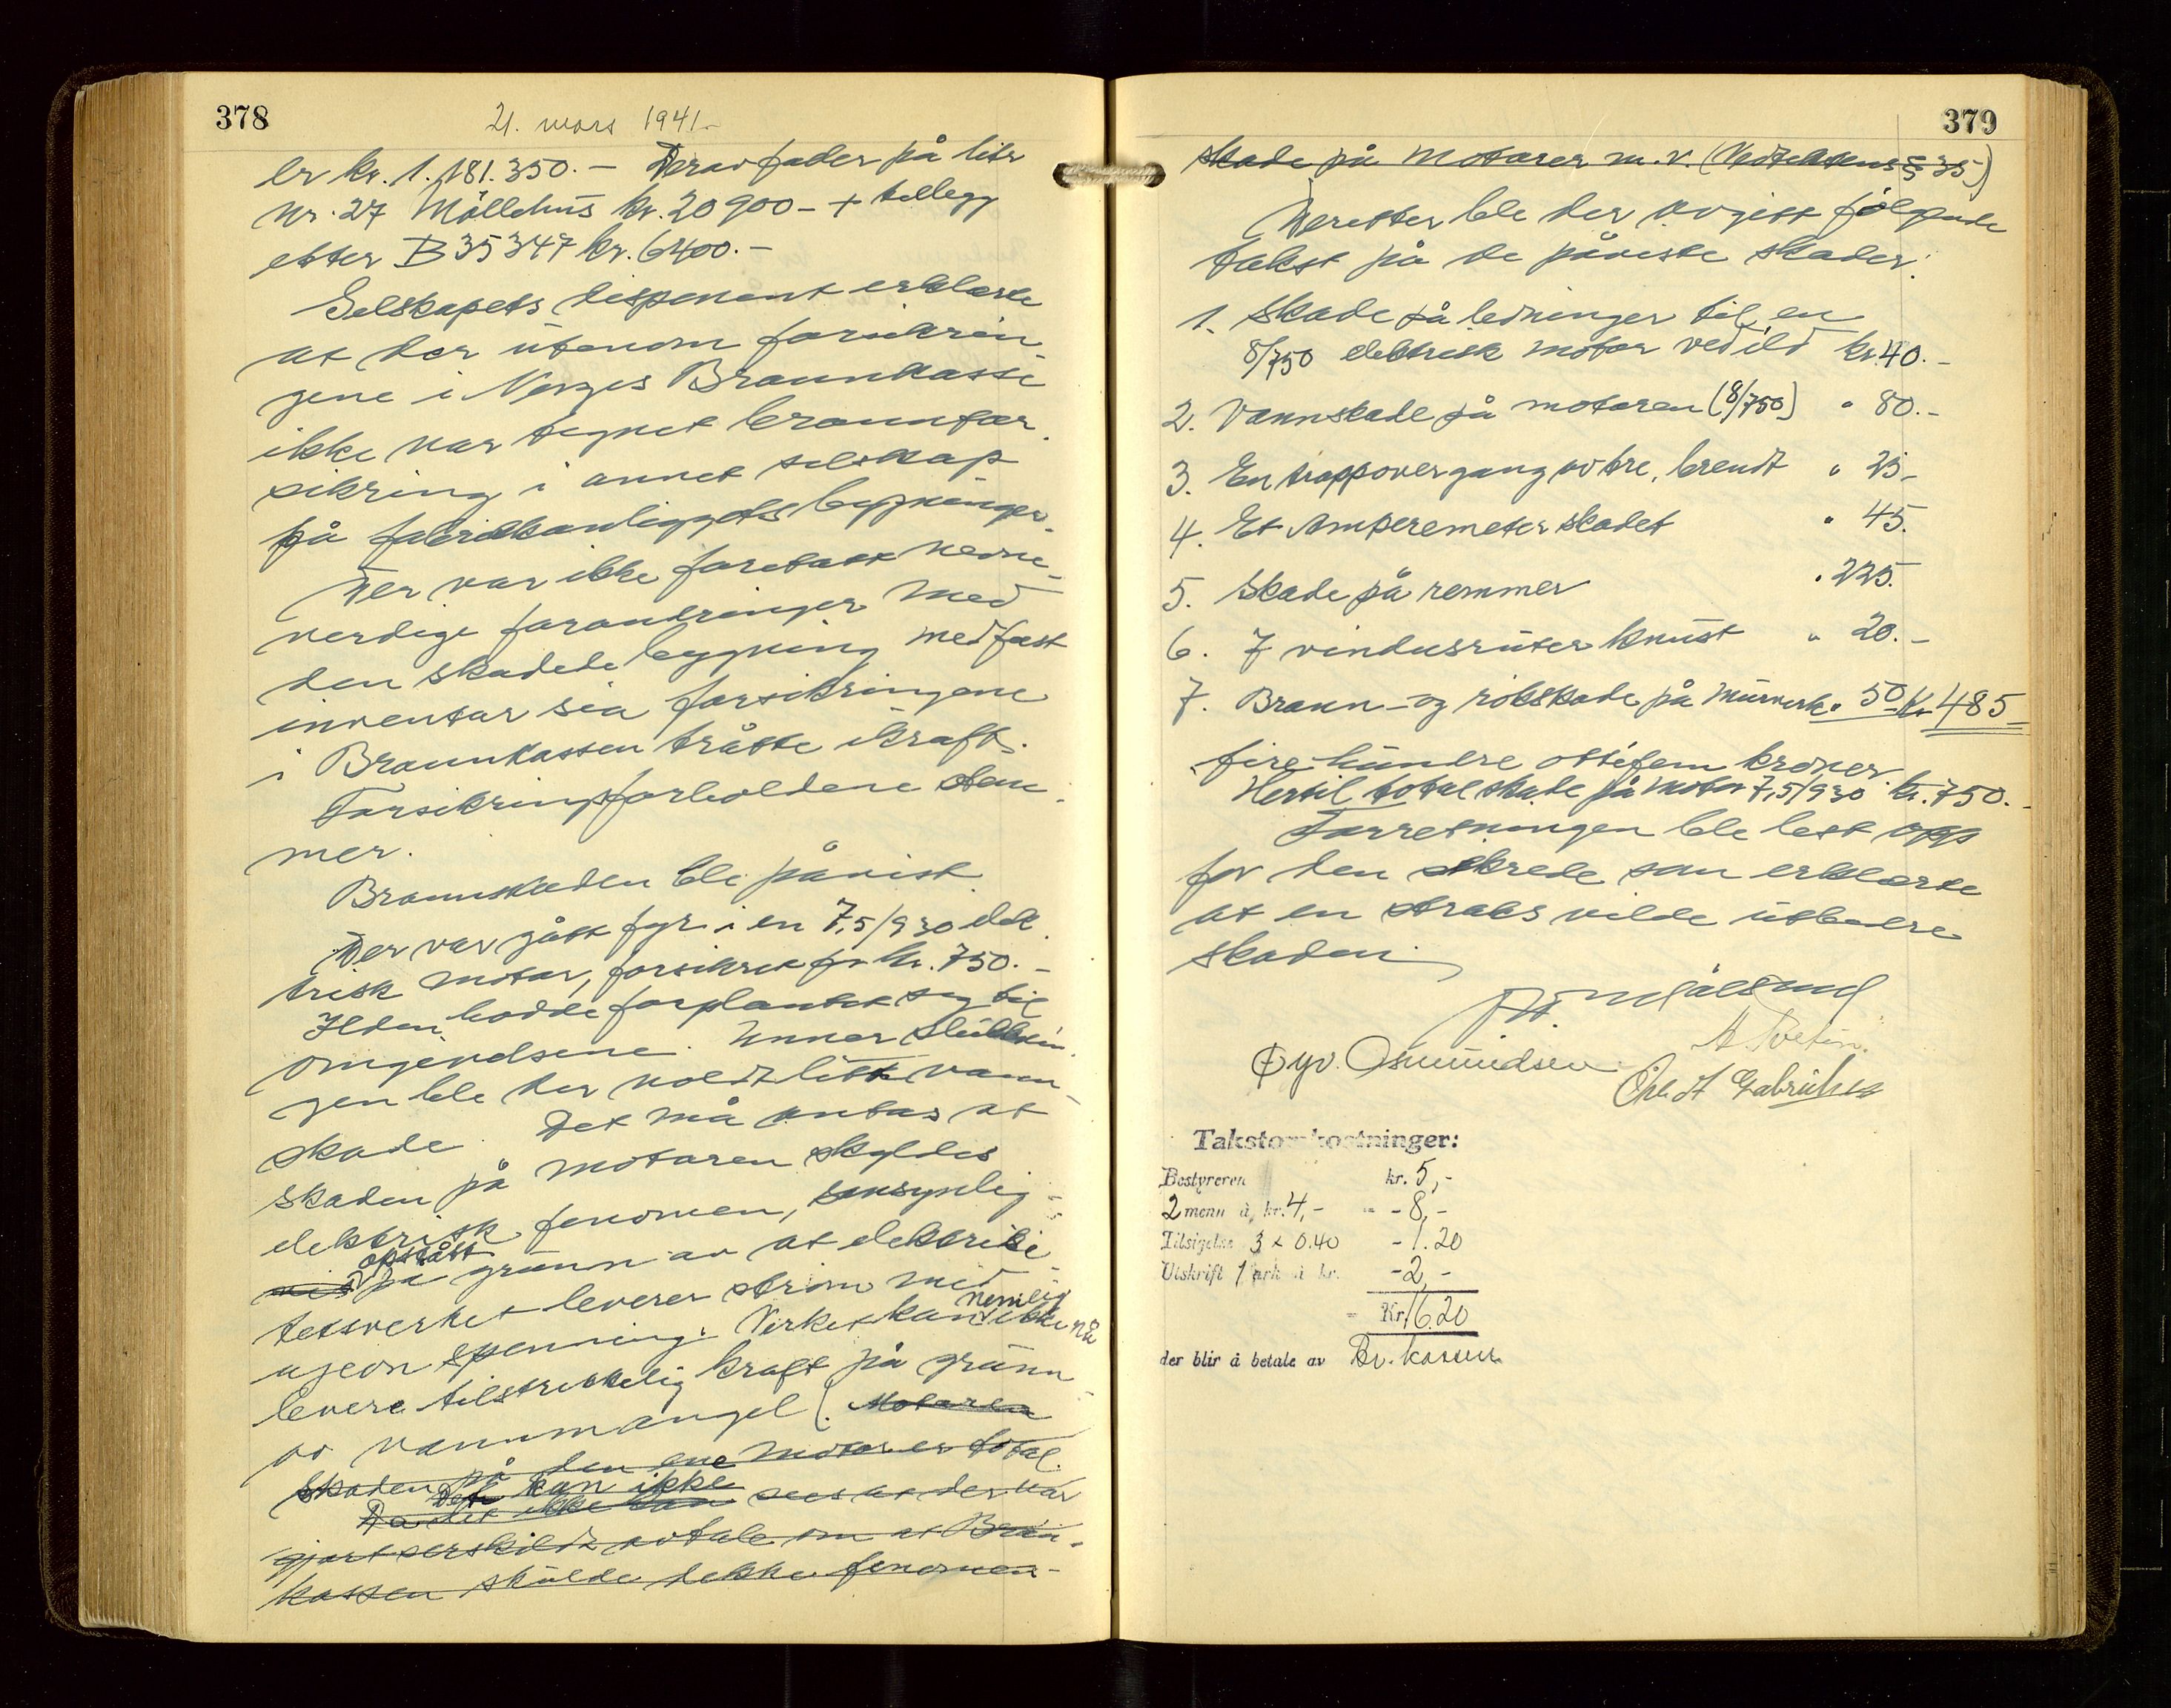 378
21. mars 1941.
er kr. 1.181.350.- Derav fader på litr
nr. 27 Möllehus kr. 20900-+ tillegg
etter B35347 kr. 6400.-
Selskapets disponent erklærte
at der utenom forsikrin-
gene i Norges Brannkasse
ikke var tegnet brannfor-
sikring i annet selskap
på fabrikkanleggets bygninger.
Der var ikke foretatt nevne-
verdige forandringer med
den skadede bygning med fast
inventar sia forsikringene
i Brannkassen trådte ikraft.
Forsikringsforholdene stem-
mer.
Brannskaden ble påvist
Der var gått fyr i en 7,5/930 elek
trisk motor, forsikret for kr. 750.-
Ilden hadde forplantet seg til
omgivelsene. Unner slukkin-
gen ble der voldt litt vann-
skade. Det må antas at
skaden på motoren skyldes
elektrisk fenomen, sansynlig-
vis opstått på grunn av at elektrisi-
tetsverket leverer strøm med
ujevn spenning. Verket kan nemlig ikke nu
levere tilstrekkelig kraft på grunn
av vannmangel (. Motoren
skaden på den ene motor er total.
Det kan ikke
Da det ikke kan sees at der var
gjort særskildt avtale om at Bran-
kassen skulde dekke fenomen-
379
skade på motorer m.v. (Vedtektens § 35)
Deretter ble der avgitt følgende
takst på de påviste skader:
1. Skade på ledninger til en
8/750 elektrisk motor ved ild kr. 40.-
2. Vannskade på motoren (8/750) " 80.-
3. En trappovergang av tre, brendt " 25-
4. Et Amperemeter skadet " 45.
5. Skade på remmer " 225.
6. 7 vindusruter knust " 20.-
7. Brann- og rökskade på murverk " 50 Kr 485
firehundre ottifem kroner.
Hertil total skade på motor 7,5/930 kr. 750.-
Forretningen ble lest opp
for den sikrede som erklærte
at en straks vilde utbedre
skaden.
Øyv. Osmundsen
Takstomkostninger:
Bestyreren kr. 5,-
2 menn à kr. 4,- " - 8,-
Tilsigelse 3 x 0.40 - 1.20
Utskrift 1 ark à kr. - 2,-
= Kr. 16.20
der blir å betale av Br. kassen